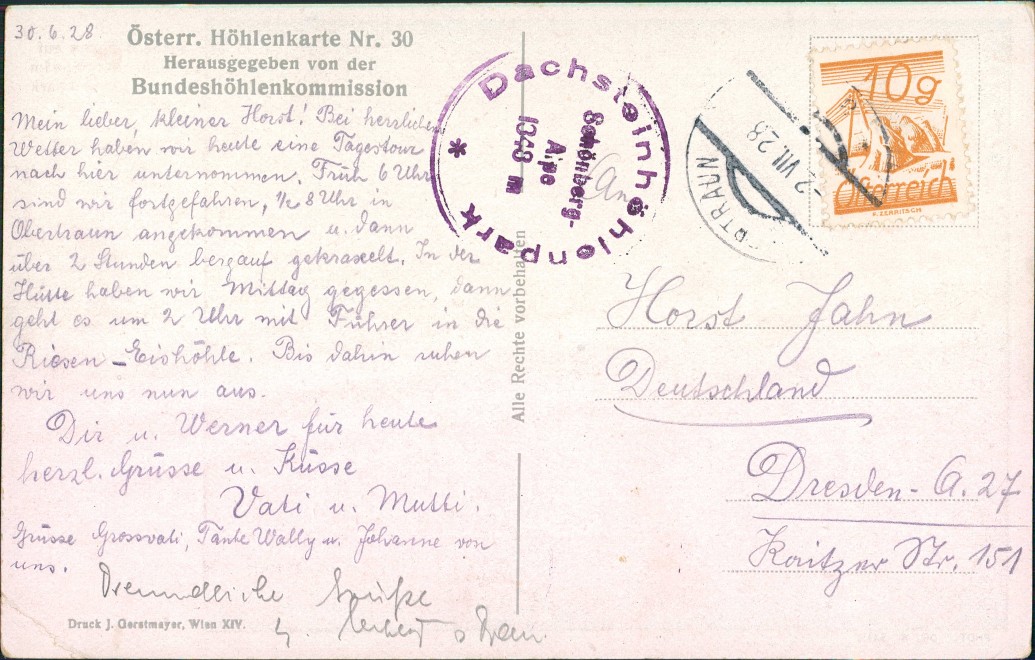 30.6.28.
Österr. Höhlenkarte Nr. 30
Herausgegeben von der
Bundeshöhlenkommission
Mein lieber, kleiner Horst! Bei herrlichem
Wetter haben wir heute eine Tagestour
nach hier unternommen. Früh 6 Uhr
sind wir fortgefahren, 1/2 8 Uhr in
Obertraun angekommen u. dann
über 2 Stunden bergauf gekraxelt. In der
Hütte haben wir Mittag gegessen, dann
geht es um 2 Uhr mit Führer in die
Riesen-Eishöhle. Bis dahin ruhen
wir uns nun aus.
Dir u. Werner für heute
herzl. Grüsse u. Küsse
Vati u. Mutti.
Grüsse Grossvati, Tante Wally u. Johanne von
uns.
Freundliche Grüße
Druck J. Gerstmayer, Wien XIV.
Alle Rechte vorbehalten
* Dachsteinhöhlenpark *
Schönberg-
Alpe
1348 m
An
-2.VII.28
TRAUN
10g
Österreich
Horst Jahn
Deutschland
Dresden-A. 27
Kaitzer Str. 151